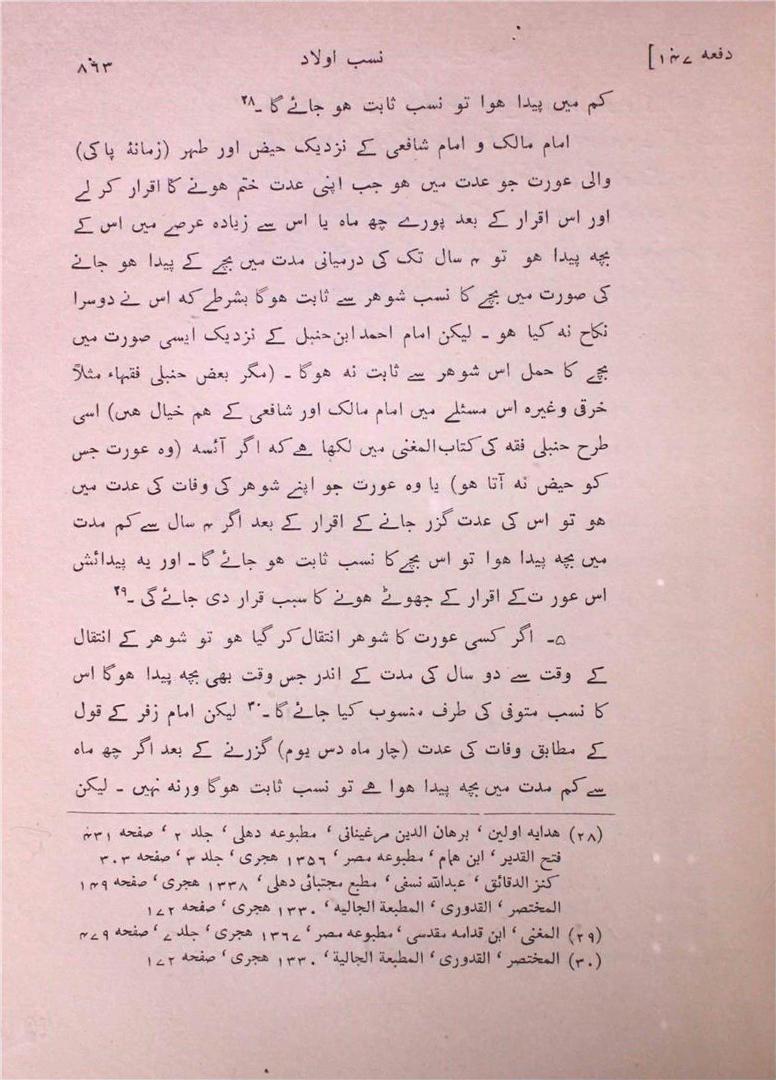 دفعہ ۱۴۷]
نسب اولاد
۸۶۳
کم میں پیدا ہوا تو نسب ثابت ہو جائے گا ۔۲۸
امام مالک و امام شافعی کے نزدیک حیض اور طہر (زمانۂ پاکی)
والی عورت جو عدت میں ہو جب اپنی عدت ختم ہونے کا اقرار کر لے
اور اس اقرار کے بعد پورے چھ ماہ یا اس سے زیادہ عرصے میں اس کے
بچہ پیدا ہو تو ۴ سال تک کی درمیانی مدت میں بچے کے پیدا ہو جانے
کی صورت میں بچے کا نسب شوہر سے ثابت ہوگا بشرطے کہ اس نے دوسرا
نکاح نہ کیا ہو ۔ لیکن امام احمد ابن حنبل کے نزدیک ایسی صورت میں
بچے کا حمل اس شوہر سے ثابت نہ ہوگا ۔ (مگر بعض حنبلی فقہاء مثلاً
خرقی وغیرہ اس مسئلے میں امام مالک اور شافعی کے ہم خیال ہیں) اسی
طرح حنبلی فقہ کی کتاب المغنی میں لکھا ہے کہ اگر آئسہ (وہ عورت جس
کو حیض نہ آتا ہو) یا وہ عورت جو اپنے شوہر کی وفات کی عدت میں
ہو تو اس کی عدت گزر جانے کے اقرار کے بعد اگر ۴ سال سے کم مدت
میں بچہ پیدا ہوا تو اس بچے کا نسب ثابت ہو جائے گا ۔ اور یہ پیدائش
اس عور ت کے اقرار کے جھوٹے ہونے کا سبب قرار دی جائے گی ۔۲۹
۵۔ اگر کسی عورت کا شوہر انتقال کر گیا ہو تو شوہر کے انتقال
کے وقت سے دو سال کی مدت کے اندر جس وقت بھی بچہ پیدا ہوگا اس
کا نسب متوفی کی طرف منسوب کیا جائے گا ۔۳۰ لیکن امام زفر کے قول
کے مطابق وفات کی عدت (چار ماہ دس یوم) گزرنے کے بعد اگر چھ ماہ
سے کم مدت میں بچہ پیدا ہوا ہے تو نسب ثابت ہوگا ورنہ نہیں ۔ لیکن
(۲۸) ھدایہ اولین ، برھان الدین مرغینانی ، مطبوعہ دھلی ، جلد ۲ ، صفحہ ۴۳۱
فتح القدیر ، ابن ھمام ، مطبوعہ مصر ، ۱۳۵۶ ھجری ، جلد ۳ ، صفحہ ۳۰۳
کنز الدقائق ، عبداللہ نسفی ، مطبع مجتبائی دھلی ، ۱۳۳۸ ھجری ، صفحہ ۱۴۹
المختصر ، القدوری ، المطبعة الجالیہ ، ۱۳۳۰ ھجری ، صفحہ ۱۷۲
(۲۹) المغنی ، ابن قدامہ مقدسی ، مطبوعہ مصر ، ۱۳۶۷ ھجری ، جلد ۷ ، صفحہ ۴۷۹
(۳۰) المختصر ، القدوری ، المطبعة الجالیة ، ۱۳۳۰ ھجری ، صفحہ ۱۷۲